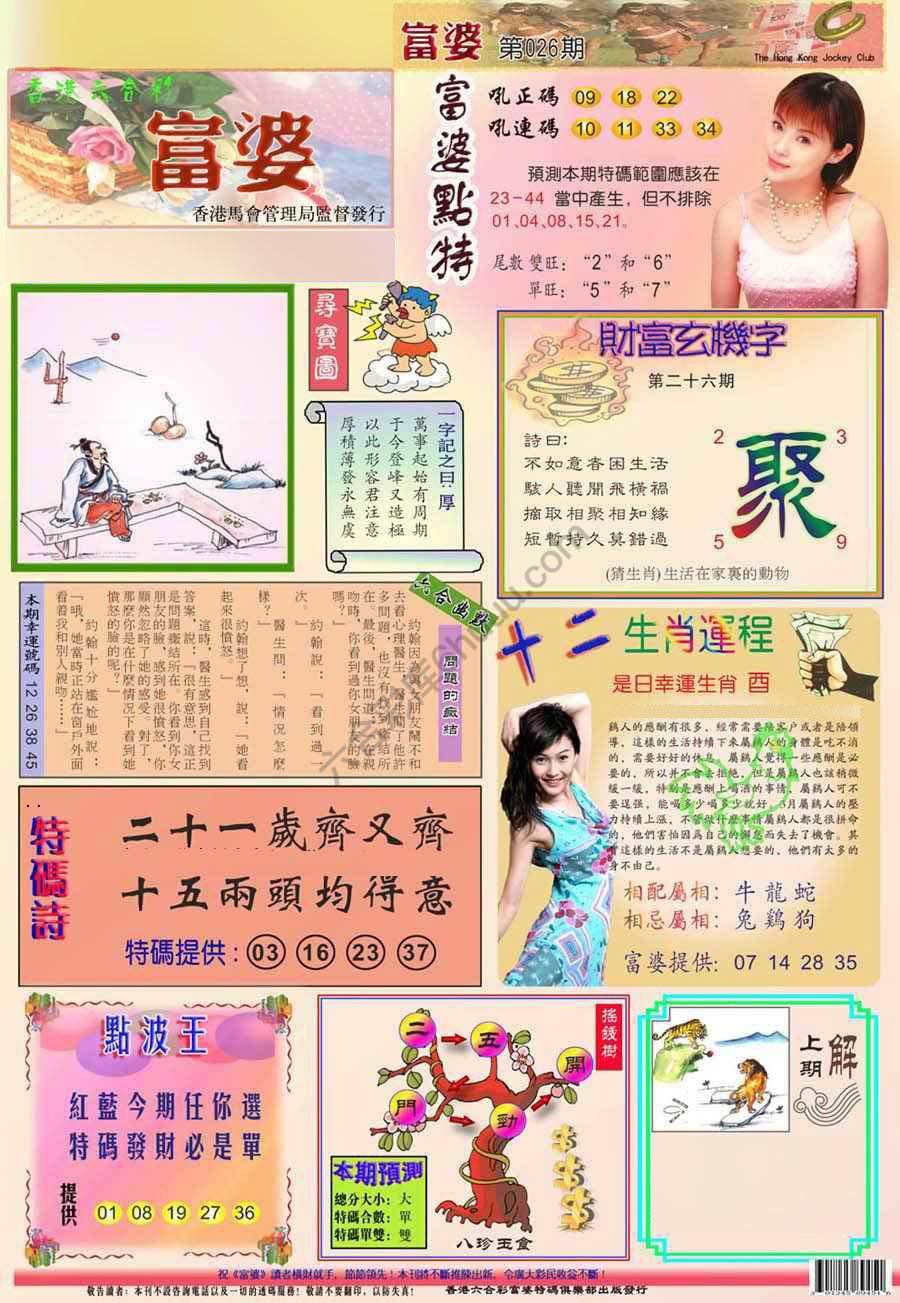 富婆 第026期
The Hong Kong Jockey Club
香港六合彩
富婆
香港馬會管理局監督發行
富婆點特
吼正碼 09 18 22
吼連碼 10 11 33 34
預測本期特碼範圍應該在
23-44 當中產生，但不排除
01、04、08、15、21。
尾數 雙旺：“2”和“6”
單旺：“5”和“7”
尋寶圖
一字記之曰：厚
萬事起始有周期
于今登峰又造極
以此形容君注意
厚積薄發永無虞
財富玄機字
第二十六期
詩曰：
不如意者困生活
駭人聽聞飛橫禍
摘取相聚相知緣
短暫持久莫錯過
2 3
聚
5 9
(猜生肖)生活在家裏的動物
六合幽默
問題的癥結
約翰因為與女朋友鬧不和
去看心理醫生，醫生問了他許
多問題，也沒有找到癥結所
在。最後，醫生問道：「在親
吻時，你看到過你女朋友的臉
嗎？」
約翰說：「看到過一
次。」
醫生問：「情況怎麼
樣？」
約翰想了想，說：「她看
起來很憤怒。」
這時，醫生感到自己找到
答案，說：「很有意思，這正
是問題癥結所在。你看到你女
朋友的臉，感到她很憤怒，你
顯然忽略了她的感受。對了，
那麼你是在什麼情況下看到她
憤怒的臉的呢？」
約翰十分尷尬地說：
「哦，她當時正站在窗戶外面
看着我和別人親吻……」
本期幸運號碼 12 26 38 45
十二生肖運程
是日幸運生肖 酉
鷄人的應酬有很多，經常需要陪客户或者是陪領
導，這樣的生活持續下來屬鷄人的身體是吃不消
的，需要好好的休息。屬鷄人覺得一些應酬是必
要的，所以并不會去拒絶，但是屬鷄人也該稍微
緩一緩，特别是應酬上喝酒的事情，屬鷄人可不
要逞强，能喝多少喝多少就好。3月屬鷄人的壓
力持續上漲，不管做什麼事情屬鷄人都是很拼命
的，他們害怕因爲自己的懈怠而失去了機會。其
實這樣的生活不是屬鷄人想要的，他們有太多的
身不由己。
相配屬相：牛 龍 蛇
相忌屬相：兔 鷄 狗
富婆提供：07 14 28 35
特碼詩
二十一歲齊又齊
十五兩頭均得意
特碼提供：03 16 23 37
點波王
紅藍今期任你選
特碼發財必是單
提供 01 08 19 27 36
搖錢樹
二 五 開
門 勁
本期預測
總分大小：大
特碼合數：單
特碼單雙：雙
八珍玉食
上期解
祝《富婆》讀者橫財就手，節節領先！本刊將不斷推陳出新，令廣大彩民收益不斷！
敬告讀者：本刊不設咨詢電話以及一切的透碼服務！敬請不要翻印，以防失真！ 香港六合彩富婆特碼俱樂部出版發行